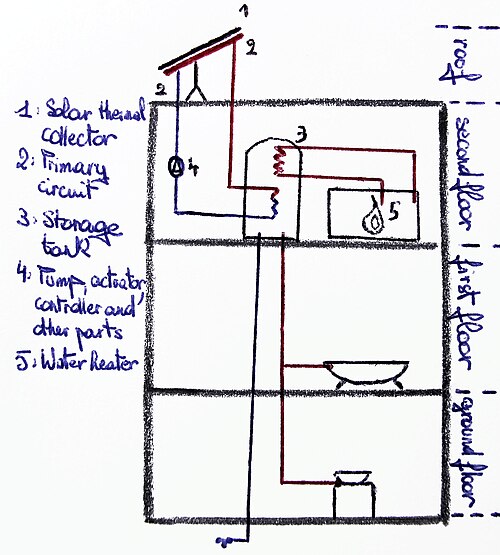 1
2
2
3
4
5
1: Solar thermal
collector
2: Primary
circuit
3: Storage
tank
4: Pump, actuator,
controller and
other parts
5: Water heater
roof
second floor
first floor
ground floor